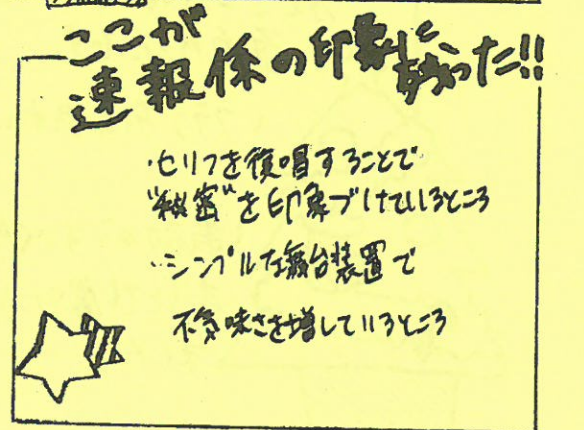 ここが
速報係の印象に残った!!
・セリフを復唱することで
"秘密"を印象づけているところ
・シンプルな舞台装置で
不気味さを増しているところ